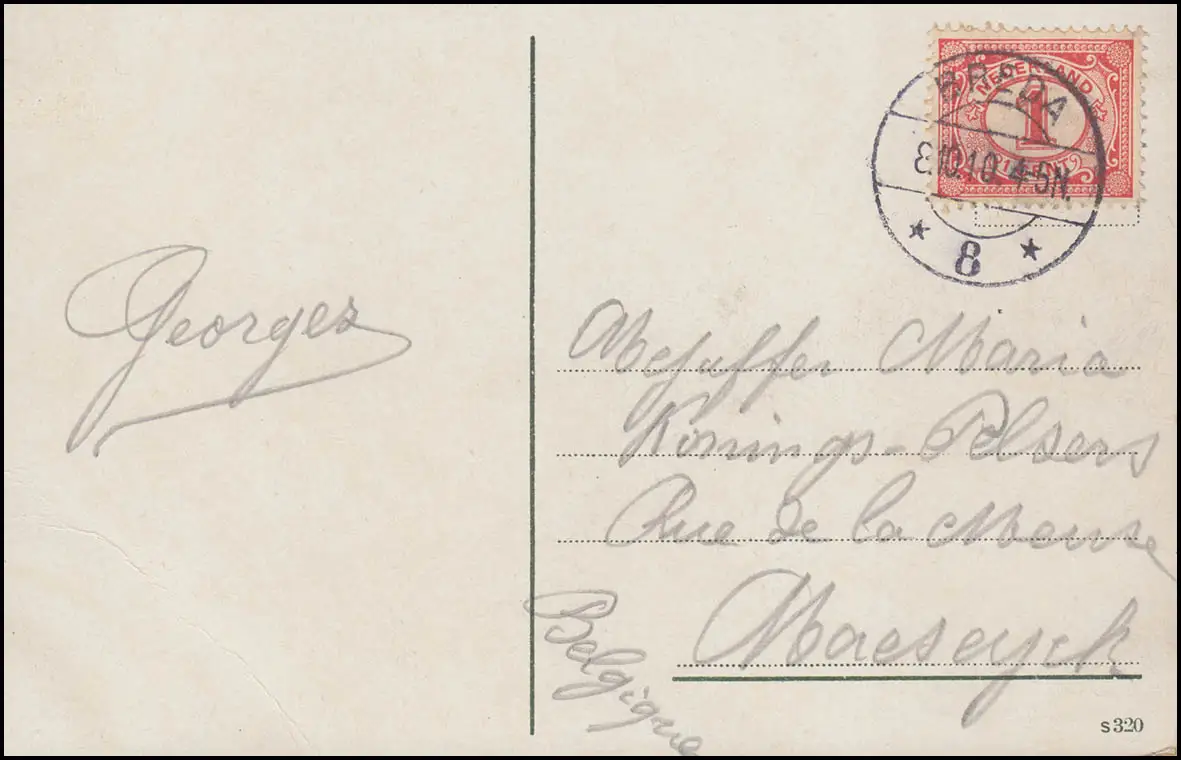 NEDERLAND
1
1 CENT
BREDA
8.10.10. 4-5N.
8
Georges
Mejuffer Maria
Konings-Pelsers
Rue de la Meuse
Maeseyck
Belgique
S320